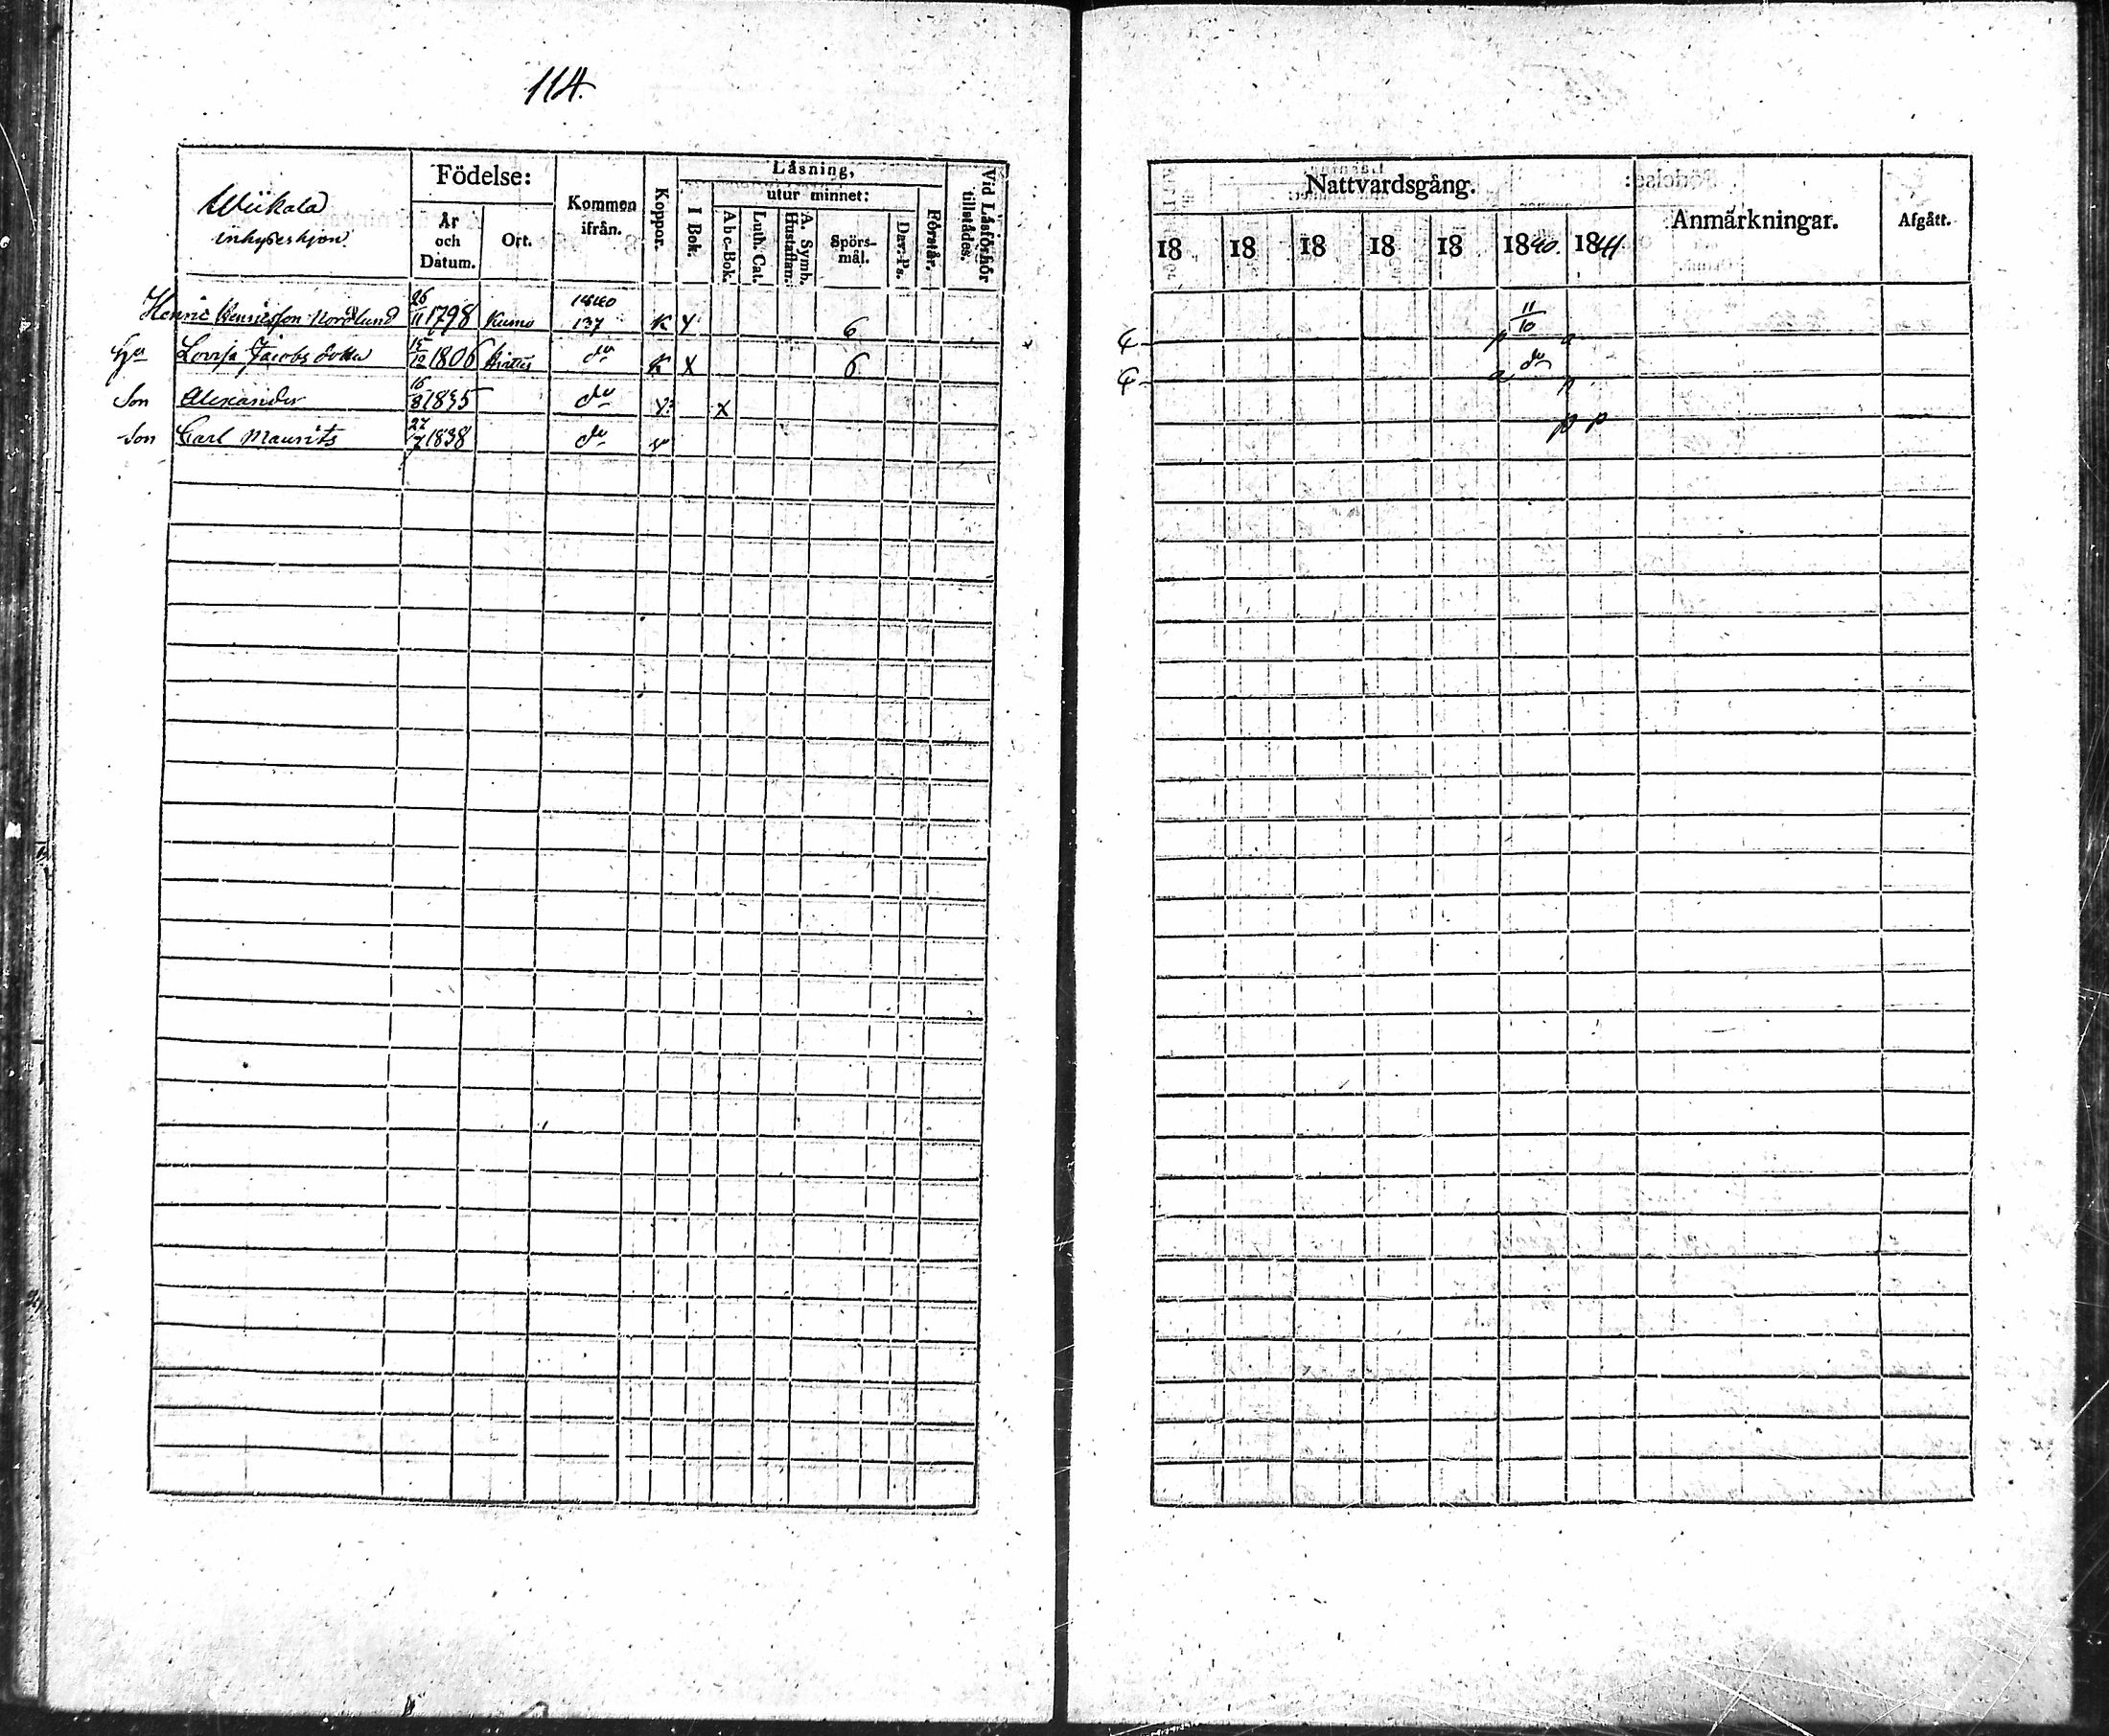 114.
Födelse:
År och Datum.
Ort.
Kommen ifrån.
Koppor.
Läsning,
I Bok.
utur minnet:
A b c-Bok.
Luth. Cat.
A. Symb. Hustaflan.
Spörs-mål.
Dav. Ps.
Förstår.
Vid Läsförhör tillstädes.
inhyseshjon.
Henric Henricsson Nordlund 26/11 1798 Kumo 1840 137 K Y 6
Hu Lovisa Jacobs dotter 15/12 1806 do K X 6
Son Alexander 16/8 1835 do X
Son Carl Maurits 27/7 1838 do
Nattvardsgång.
Anmärkningar.
Afgått.
18 18 18 18 18 1840. 1841
11/10
p a
do
a p
p p